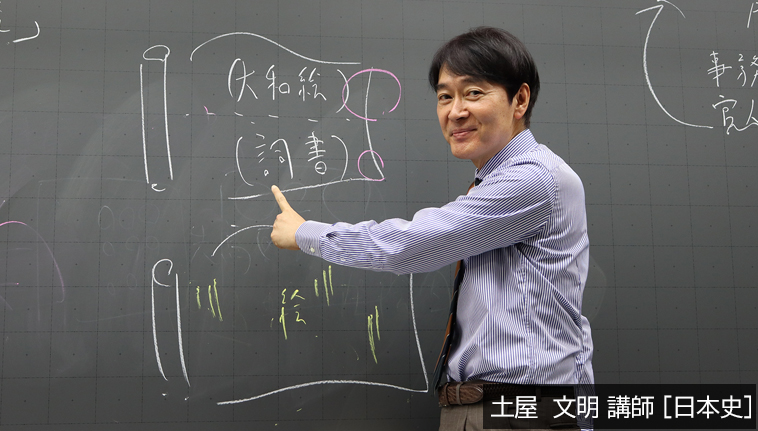 (大和絵)
(詞書)
絵
事務
官人
土屋 文明 講師 [日本史]